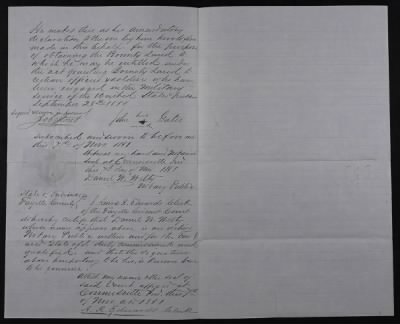 He makes this as his amendatory
declaration to the one by him heretofore
made in this behalf for the purpose
of obtaining the Bounty Land to
which he may be entitled under
the act granting Bounty Land to
certain officers & soldiers who have
been engaged in the military
service of the United States passed
September 28th 1850
John his
mark
Subscribed and sworn to before me
this 7th of Nov. 1851
Witness my hand and Notarial
seal at Connersville Ind
this 7th day of Nov 1851
Daniel W.
Notary Public
State of Indiana
Fayette County
Edwards Clerk
of the Fayette Circuit Court
do hereby certify that Daniel W.
whose name appears above is an acting
Notary Public within and for the
and State of duly commissioned and
qualified and that the signature
above purporting to be his, is
to be genuine.
Witness my name & the seal of
said Court affixed at
Connersville Ind this 7th
of Nov A.D. 1851
Edwards Clerk